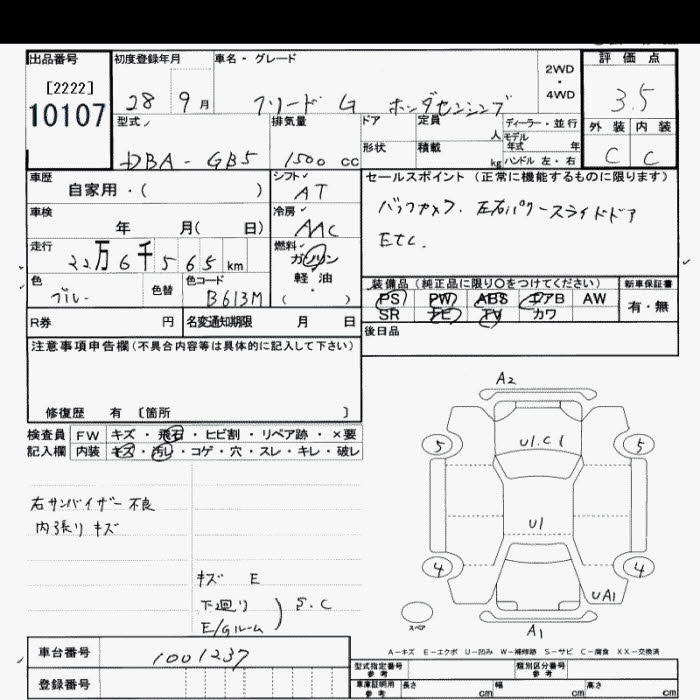 出品番号 初度登録年月 車名・グレード 2WD・4WD 評価点
[2222]
10107 28 9月 フリード G ホンダセンシング 3.5
型式 排気量 ドア 定員 人 ディーラー・並行 外装 内装
モデル年式 年
DBA-GB5 1500 cc 形状 積載 kg ハンドル 左・右 C C
車歴 シフト セールスポイント (正常に機能するものに限ります)
自家用・( ) AT
車検 冷房 バックカメラ. 左右パワースライドドア
年 月( 日) AAC
走行 燃料 ETC.
22万6千565km ガソリン
軽油
色 色替 色コード 装備品(純正品に限り○をつけてください) 新車保証書
ブルー B613M ( ) PS PW ABS エアB AW 有・無
R券 円 名変通知期限 月 日 SR ナビ TV カワ
後日品
注意事項申告欄(不具合内容等は具体的に記入して下さい)
修復歴 有 〔箇所 〕
検査員 FW キズ・飛石・ヒビ割・リペア跡・×要
記入欄 内装 キズ・汚レ・コゲ・穴・スレ・キレ・破レ
右サンバイザー不良
内張りキズ
キズ E
下廻り
E/Gルーム
S.C
A2
5 U1.C1 5
U1
4 4
UA1
スペア
A1
A-キズ E-エクボ U-凹み W-補修跡 S-サビ C-腐食 XX-交換済
車台番号 1001237
登録番号
型式指定番号 参考 類別区分番号 参考
車庫証明用 参考 長さ cm 幅 cm 高さ cm